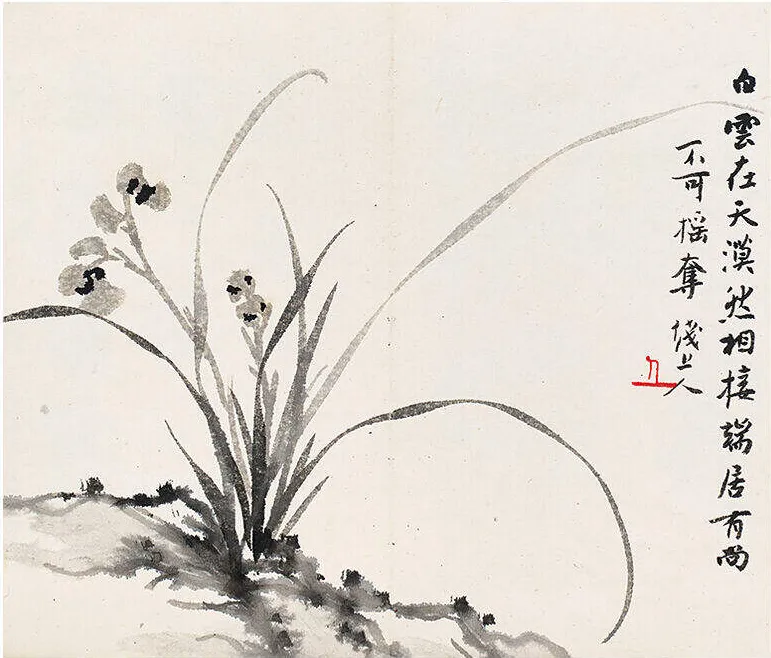 白雲在天漠然相接端居有尚
不可摇奪
上人